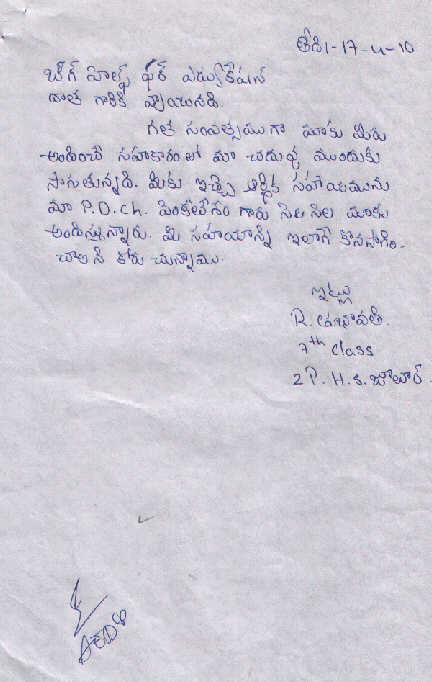 తేది 1-17-4-10
బిగ్ హెల్ప్ ఫర్ ఎడ్యుకేషన్
దాత గారికి వ్రాయునది.
గత సంవత్సముగా మాకు మీరు
అందించే సహకారంతో మా చదువు ముందుకు
సాగుతున్నది. మీరు ఇచ్చే ఆర్థిక సహాయమును
మా P.D.ch. పెంచలేశం గారు నెల నెల మాకు
అందిస్తున్నారు. మీ సహాయాన్ని ఇలాగే కొనసాగిం-
చాలని కోరు చున్నాము.
ఇట్లు
R.
7th class
Z P. H. S.